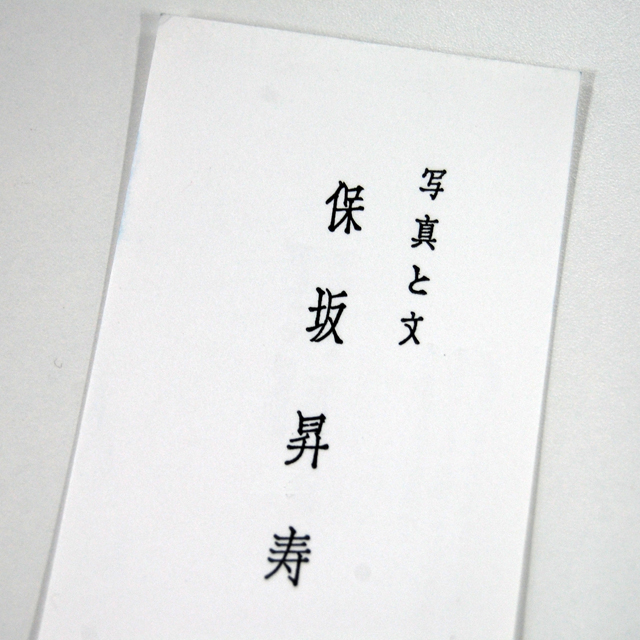 写真と文
保坂昇寿